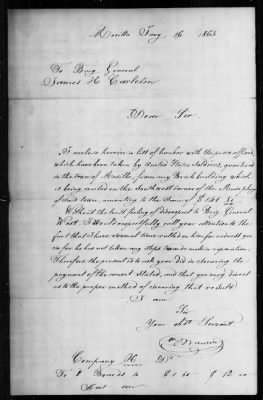 Mesilla Jany 16 1863
To Brig. General
James H Carleton
Dear Sir
I enclose herein a list of lumber with the prices affixed,
which have been taken by United States Soldiers, quartered
in the town of Mesilla, from my Brick building which
is being erected on the South west corner of the Main plaza
of said town, amounting to the Sum of
Without the least feelings of disrespect to Brig. General
West, I would respectfully call your attention to the
fact that I have several times called on him for redress &
so far he has not taken any steps towards making reparation.
Therefore the present is to ask your aid in securing the
payment of the amount stated, and that you may direct
as to the proper method of securing that result
I am
Sir
Your obdt Servant
Company
To 8 Boards 12 00
over